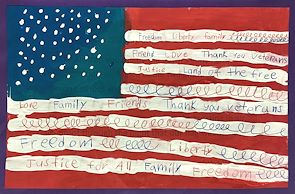 Freedom Liberty family
Friend Love Thank you veterans
Justice Land of the free
Love Family Friends Thank you veterans
Freedom Liberty
Justice for All Family Freedom